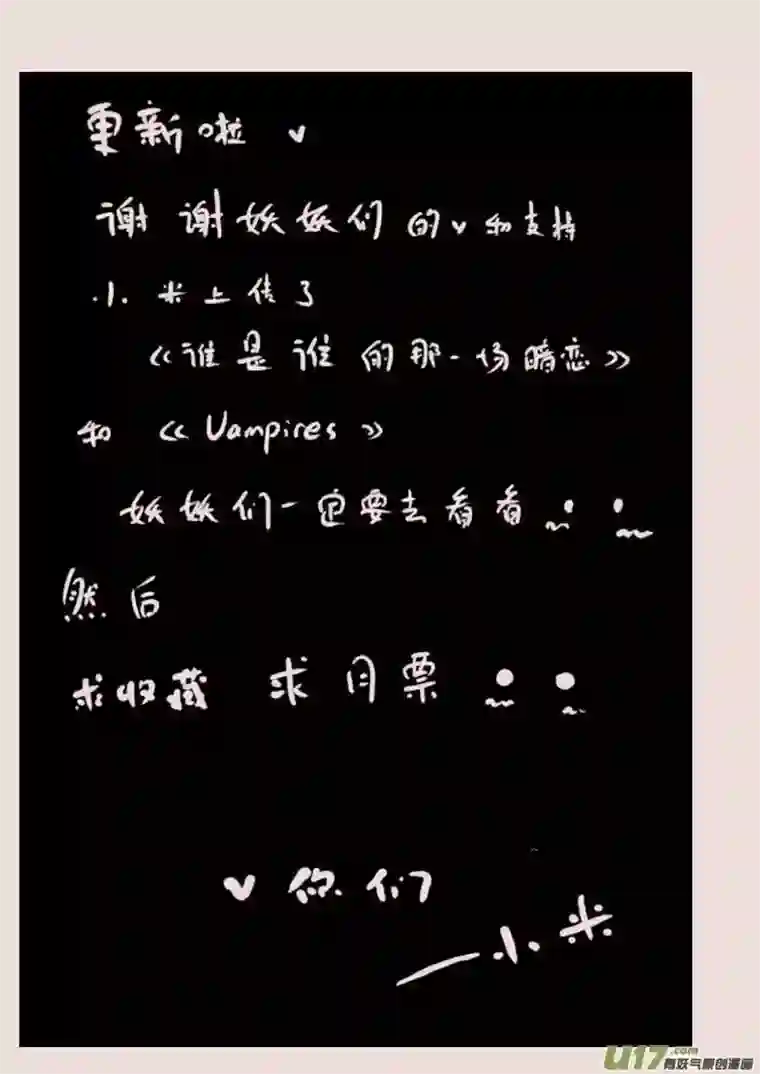 更新啦 ♥
谢谢妖妖们的♥和支持
小米上传了
《谁是谁的那一场暗恋》
和《Vampires》
妖妖们一定要去看看
然后
求收藏 求月票
♥你们
—小米
U17.COM
有妖气原创漫画